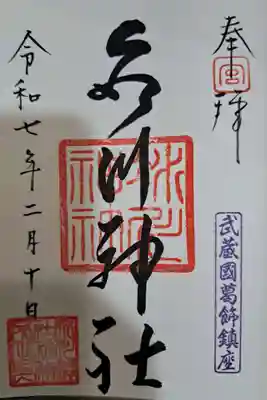 奉拝
武蔵國葛飾鎮座
氷川神社
氷川神社
令和七年二月十日